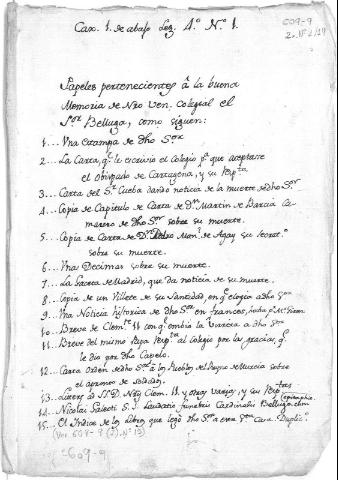 Cax. 1. de abajo Leg. 4.º N.º 1.
609-9
Papeles pertenecientes â la buena
Memoria de Nrô Ven. Colegial el
S.or Belluga, como siguen:
1... Vna Estampa de dho S.or
2... La Carta, q.e le escrivió el Colegio p.a que aceptase
el Obispado de Cartagena, y su Resp.ta
3... Carta del S.r Cueba dando noticia de la muerte de dho S.r
4... Copia de Capitulo de Carta de D.n Martin de Barcia Ca-
marero de dho S.or sobre su muerte.
5... Copia de Carta de D.n Pedro Man.l de Agay su Secret.o
sobre su muerte.
6... Vnas Decimas sobre su muerte.
7... La Gaceta de Madrid, que da noticia de su muerte.
8... Copia de un Villete de su Santidad, en q.e elogia a dho S.or
9... Vna Noticia historica de dho S.or en frances, hecha p.r M.r
10... Breve de Clem.te 11 con q.e embia la Varreta a dho S.or
11... Breve del mismo Papa Resp.ta al Colegio por las gracias, q.e
le dio por dho Capelo.
12... Carta Orden de dho S.or a los Pueblos del Reyno de Murcia sobre
el apremio de soldados.
13... Literæ ad SS. D. Nrõ Clem. 11. y otros varios, y sus Resp.tas
14... Nicolai Galeoti S. I. Laudatio funebris Cardinalis Belluga
15... El Indice de los Libros que legó dho S.or a esta S.ta Casa. Duplic.o
(Ver 609-9 (2), Nº 15)
609-9